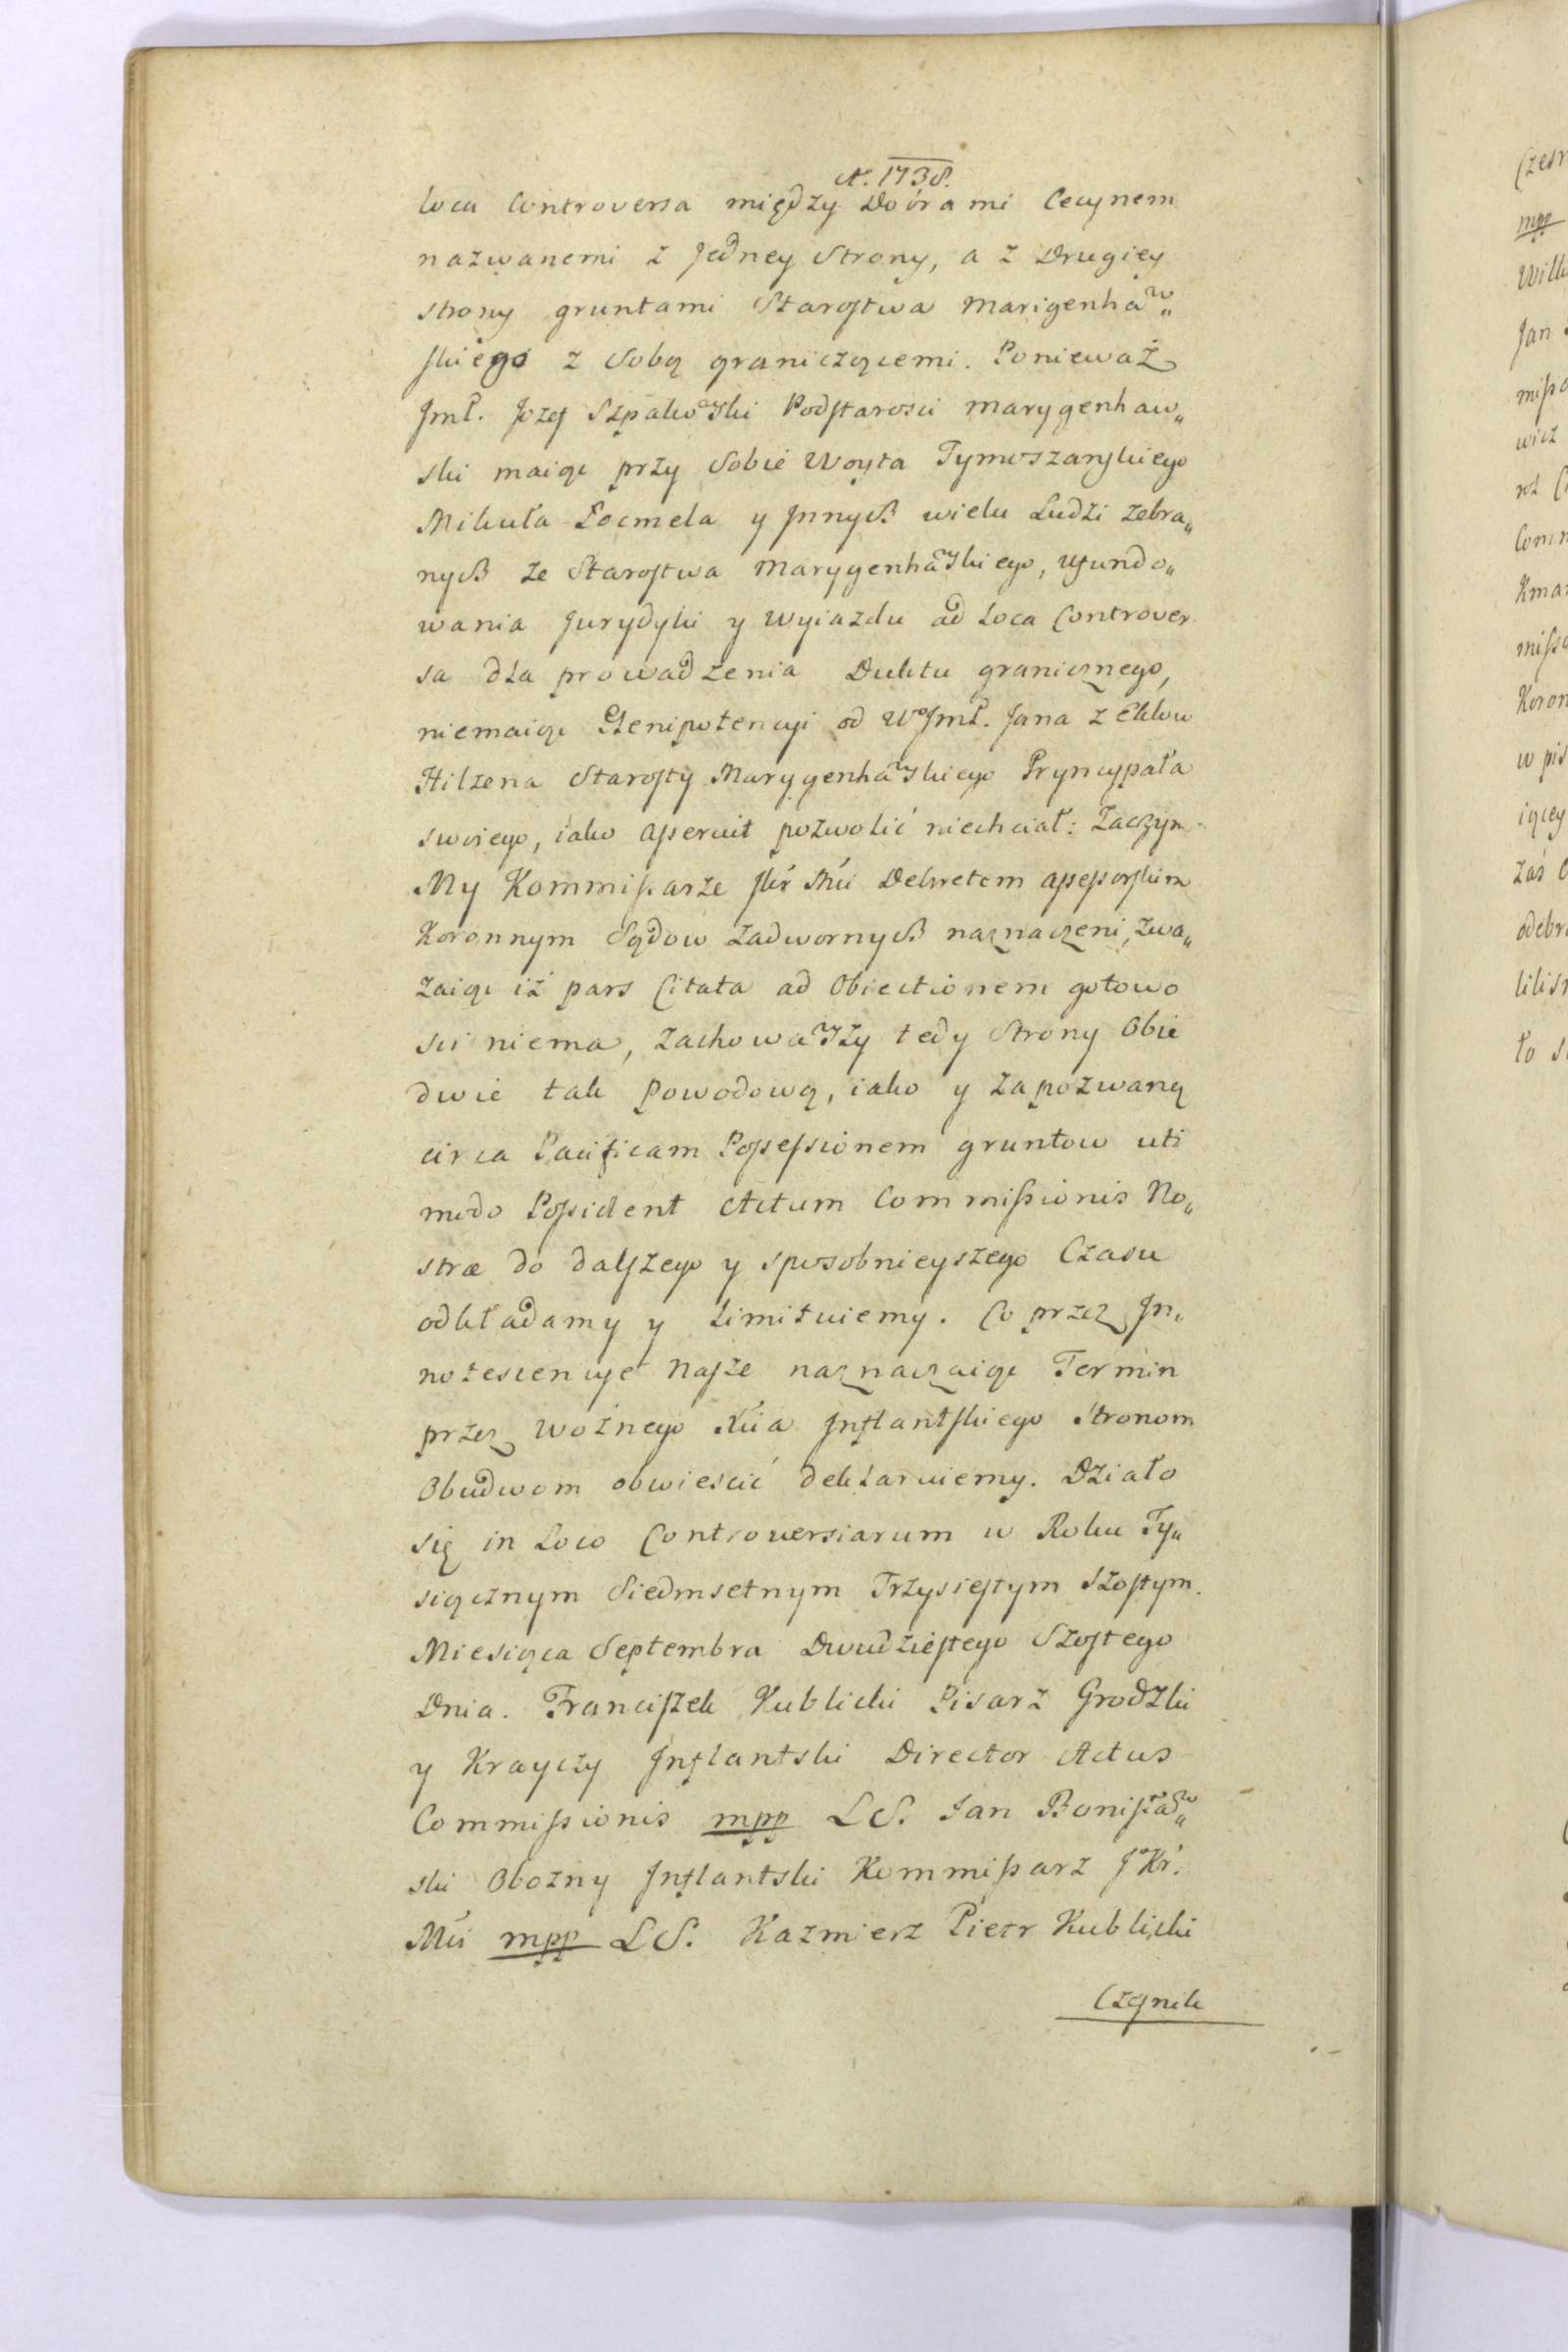 A. 1738.
loca Controversa między Dobrami Cecynem
nazwanemi z Jedney Strony, a z Drugiey
strony gruntami Starostwa Marigenhaw„
skiego z Sobą graniczącemi. Ponieważ
Jmć. Jozef Szpakowski Podstarosci Marygenhaw„
ski maiąc przy Sobie Woyta Tymoszanskiego
Mikuła Locmela y Jnnych wielu Ludzi zebra„
nych ze Starostwa Marygenhawskiego, ufundo„
wania Jurydyki y wyiazdu ad Loca Controver
sa dla prowadzenia Duktu granicznego,
niemaiąc Plenipotencyi od WoJmć. Jana z Eklow
Hilzena Starosty Marygenhawskiego Pryncypała
swoiego, iako asseruit pozwolić niechciał: Zaczym
My Kommissarze JKr Mći Dekretem assessorskim
Koronnym Sądow Zadwornych naznaczeni, zwa„
zaiąc iż pars Citata ad Obiectionem gotowo
sci niema, zachowawszy tedy Strony Obie
dwie tak Powodową, iako y Zapozwaną
circa Pacificam Possessionem gruntow uti
modo Possident Actum Commissionis No„
stræ do dalszego y sposobnieyszego Czasu
odkładamy y Limituiemy. Co przez Jn„
notescencye Nasze naznaczaiąc Termin
przez Woznego Xtwa Jnflantskiego Stronom
Obudwom obwiescić deklaruiemy. Działo
się in Loco Controversiarum w Roku Ty„
siącznym Siedmsetnym Trzysiestym Szostym.
Miesiąca Septembra Dwudziestego Szostego
Dnia. Franciszek Kublicki Pisarz Grodzki
y Krayczy Jnflantski Director Actus
Commissionis mpp LS. Jan Bonisław„
ski Obozny Jnflantski Kommissarz JKr.
Mći mpp LS. Kazmierz Pietr Kublicki
Cześnik